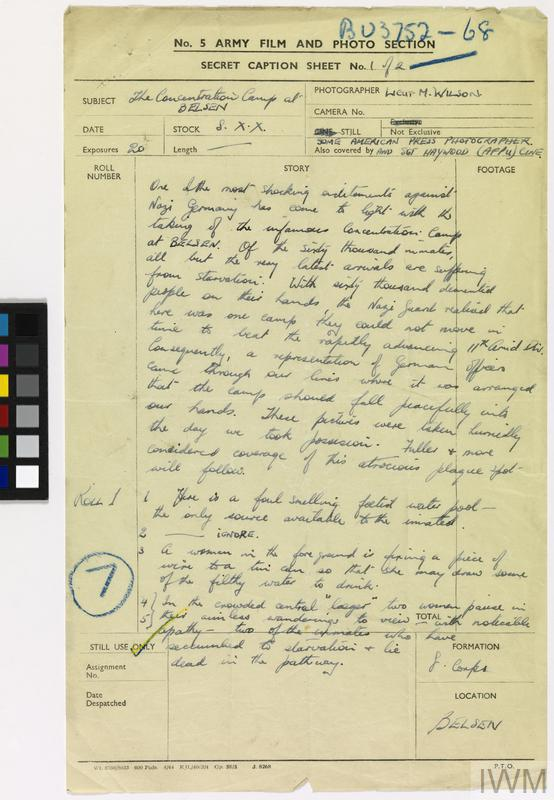 BU3752-68
No. 5 ARMY FILM AND PHOTO SECTION
SECRET CAPTION SHEET No. 1 of 2
SUBJECT The Concentration Camp at
BELSEN
PHOTOGRAPHER Lieut M. WILSON
CAMERA No.
DATE
STOCK S.X.X.
STILL
Not Exclusive
Exposures 20
Length
SOME AMERICAN PRESS PHOTOGRAPHER
Also covered by AND SGT HAYWOOD (AFPU) CINE
ROLL NUMBER
STORY
FOOTAGE
One of the most shocking indictments against
Nazi Germany has come to light with the
taking of the infamous Concentration Camp
at BELSEN. Of the sixty thousand inmates,
all but the very latest arrivals are suffering
from starvation. With sixty thousand demented
people on their hands the Nazi Guard realised that
here was one camp they could not move in
time to beat the rapidly advancing 11th Armd Div.
Consequently, a representation of German officers
came through our lines where it was arranged
that the camp should fall peacefully into
our hands. These pictures were taken hurriedly
the day we took possession. Fuller & more
considered coverage of this atrocious plague spot
will follow.
Roll 1
1 Here is a foul smelling foetid water pool -
the only source available to the inmates.
2 IGNORE.
3 A woman in the foreground is fixing a piece of
wire to a tin can so that she may draw some
of the filthy water to drink.
7
4 In the crowded central "laager" two women pause in
5 their aimless wanderings to view - with noticeable
TOTAL
apathy - two of the inmates who have
succumbed to starvation & lie
dead in the pathway.
STILL USE ONLY
Assignment No.
Date Despatched
FORMATION
8. Corps
LOCATION
BELSEN
J. 8268
P.T.O.
IWM